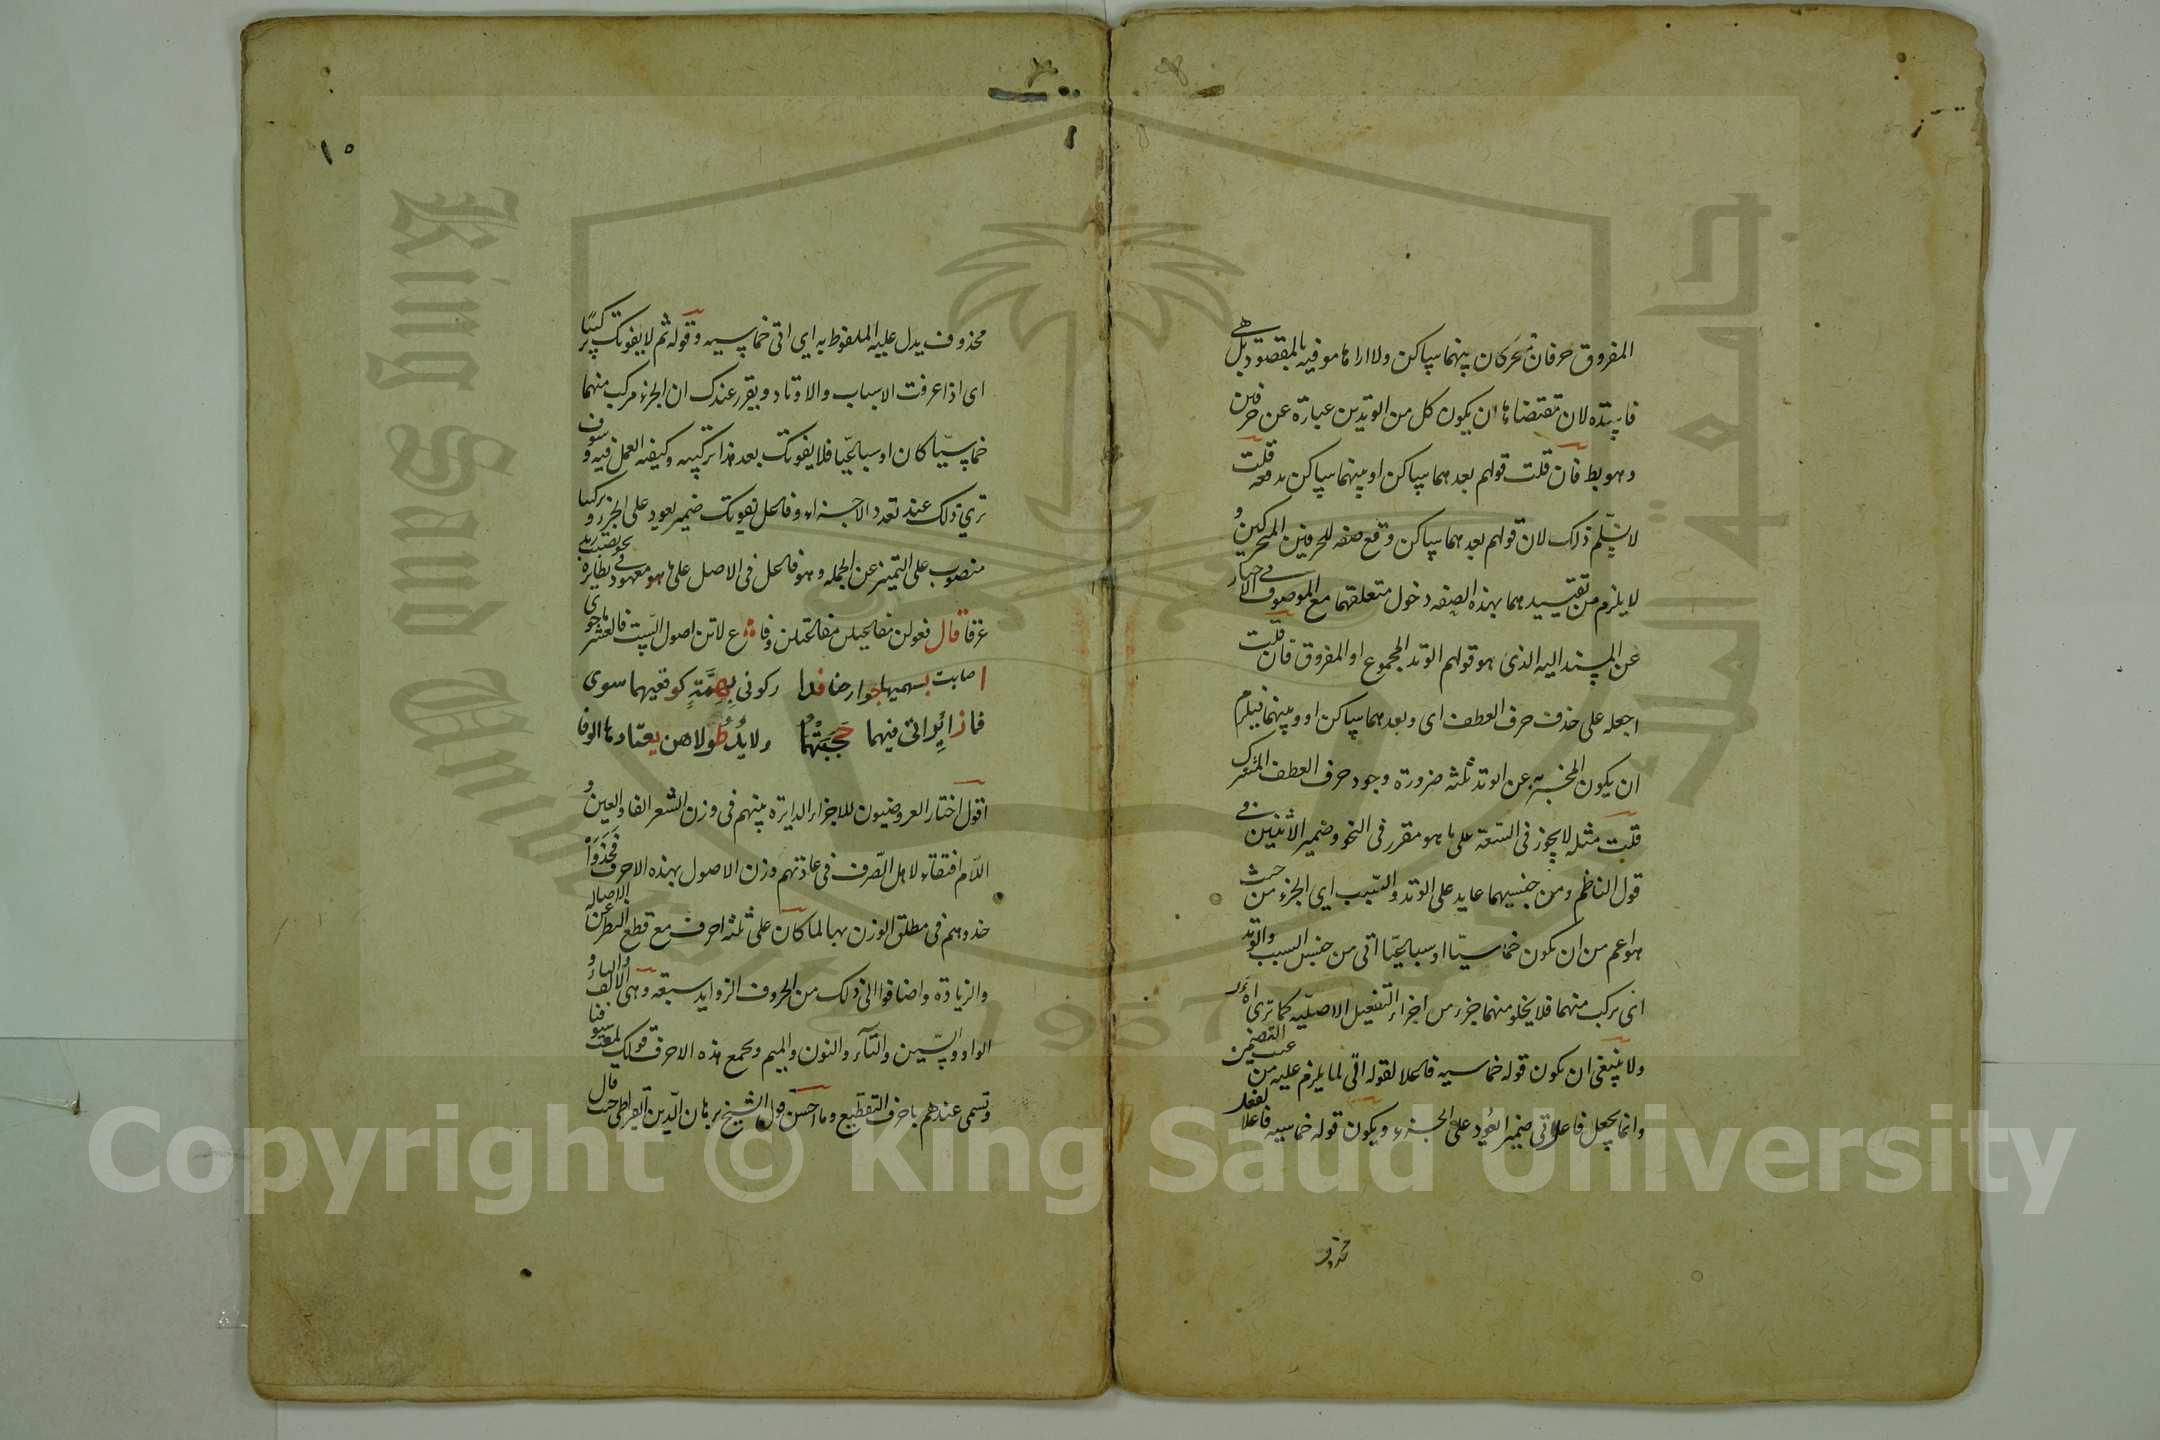 المفروق حرفان متحركان بينهما ساكن ولا اراها موفيه بالمقصود بل هى
فاسدة لان مقتضاها ان يكون كل من الوتدين عبارة عن حرفين
وهو بط فان قلت قولهم بعدهما ساكن او بينهما ساكن يدفعه قلت
لا نسلم ذلك لان قولهم بعدهما ساكن وقع صفه للحرفين المتحركين و
لا يلزم من تقييدهما بهذه الصفه دخول متعلقهما مع الموصوف فى الاخبار
عن المسند اليه الذى هو قولهم الوتد المجموع او المفروق فان قلت
اجعله على حذف حرف العطف اى وبعدهما ساكن او وبينهما فيلزم
ان يكون المخبر به عن الوتد ثلثه ضرورة وجود حرف العطف المشرك
قلت مثله لا يجوز فى السعة على ما هو مقرر فى النحو وضمير الاثنين فى
قول الناظم ومن جنسيهما عايد على الوتد والسبب اى الجزء من حيث
هو اعم من ان يكون خماسيّا او سباعيّا اتى من جنس السبب والوتد
اى تركب منهما فلا يخلو منهما جزء من اجزاء التفعيل الاصليّه كما تراه
ولا ينبغى ان يكون قوله خماسيه فاعلا لقوله اتى لما يلزم عليه من عيب التضمين
وانما يجعل فاعل اتى ضميرا يعود على الجزء ويكون قوله خماسيه فاعلا لفعل
محذوف
١٠
محذوف يدل عليه الملفوظ به اى اتى خماسيه وقوله ثم لا يفوتك تركيبا
اى اذا عرفت الاسباب والاوتاد وتقرر عندك ان الجزء مركب منهما
خماسيّا كان او سباعيّا فلا يفوتك بعد هذا تركيبه وكيفيه العمل فيه وسوف
ترى ذلك عند تعدد الاجزاء وفاعل يفوتك ضمير يعود على الجزء وتركيبا
منصوب على التمييز عن الجمله وهو فاعل فى الاصل على ما هو معهود فى نظايره نحو تصبب زيد
عرقا قال فعولن مفاعيلن مفاعلتن وفاع لاتن اصول الست فالعشر ما حوى
اصابت بسهميها جوارحنا فدا ركونى بهمّة كوقعيهما سوى
فما زائراتى فيهما حجبتهما ولا يد طولاهن يعتادها الوفا
اقول اختار العروضيون للاجزاء الدايرة بينهم فى وزن الشعر الفاء والعين و
اللام اقتفاء لاهل الصّرف فى عادتهم وزن الاصول بهذه الاحرف فحذوا
حذوهم فى مطلق الوزن بها لما كان على ثلثه احرف مع قطع النظر عن الاصاله
والزيادة واضافوا الى ذلك من الحروف الزوايد سبعه وهى الالف والياء و
الواو والسّين والتاء والنون والميم ويجمع هذه الاحرف قولك لمعت سيوفنا
وتسمى عندهم باحرف التقطيع وما احسن قول الشيخ برهان الدّين القيراطى حيث قال
King Saud University
جامعة الملك
1957
Copyright © King Saud University